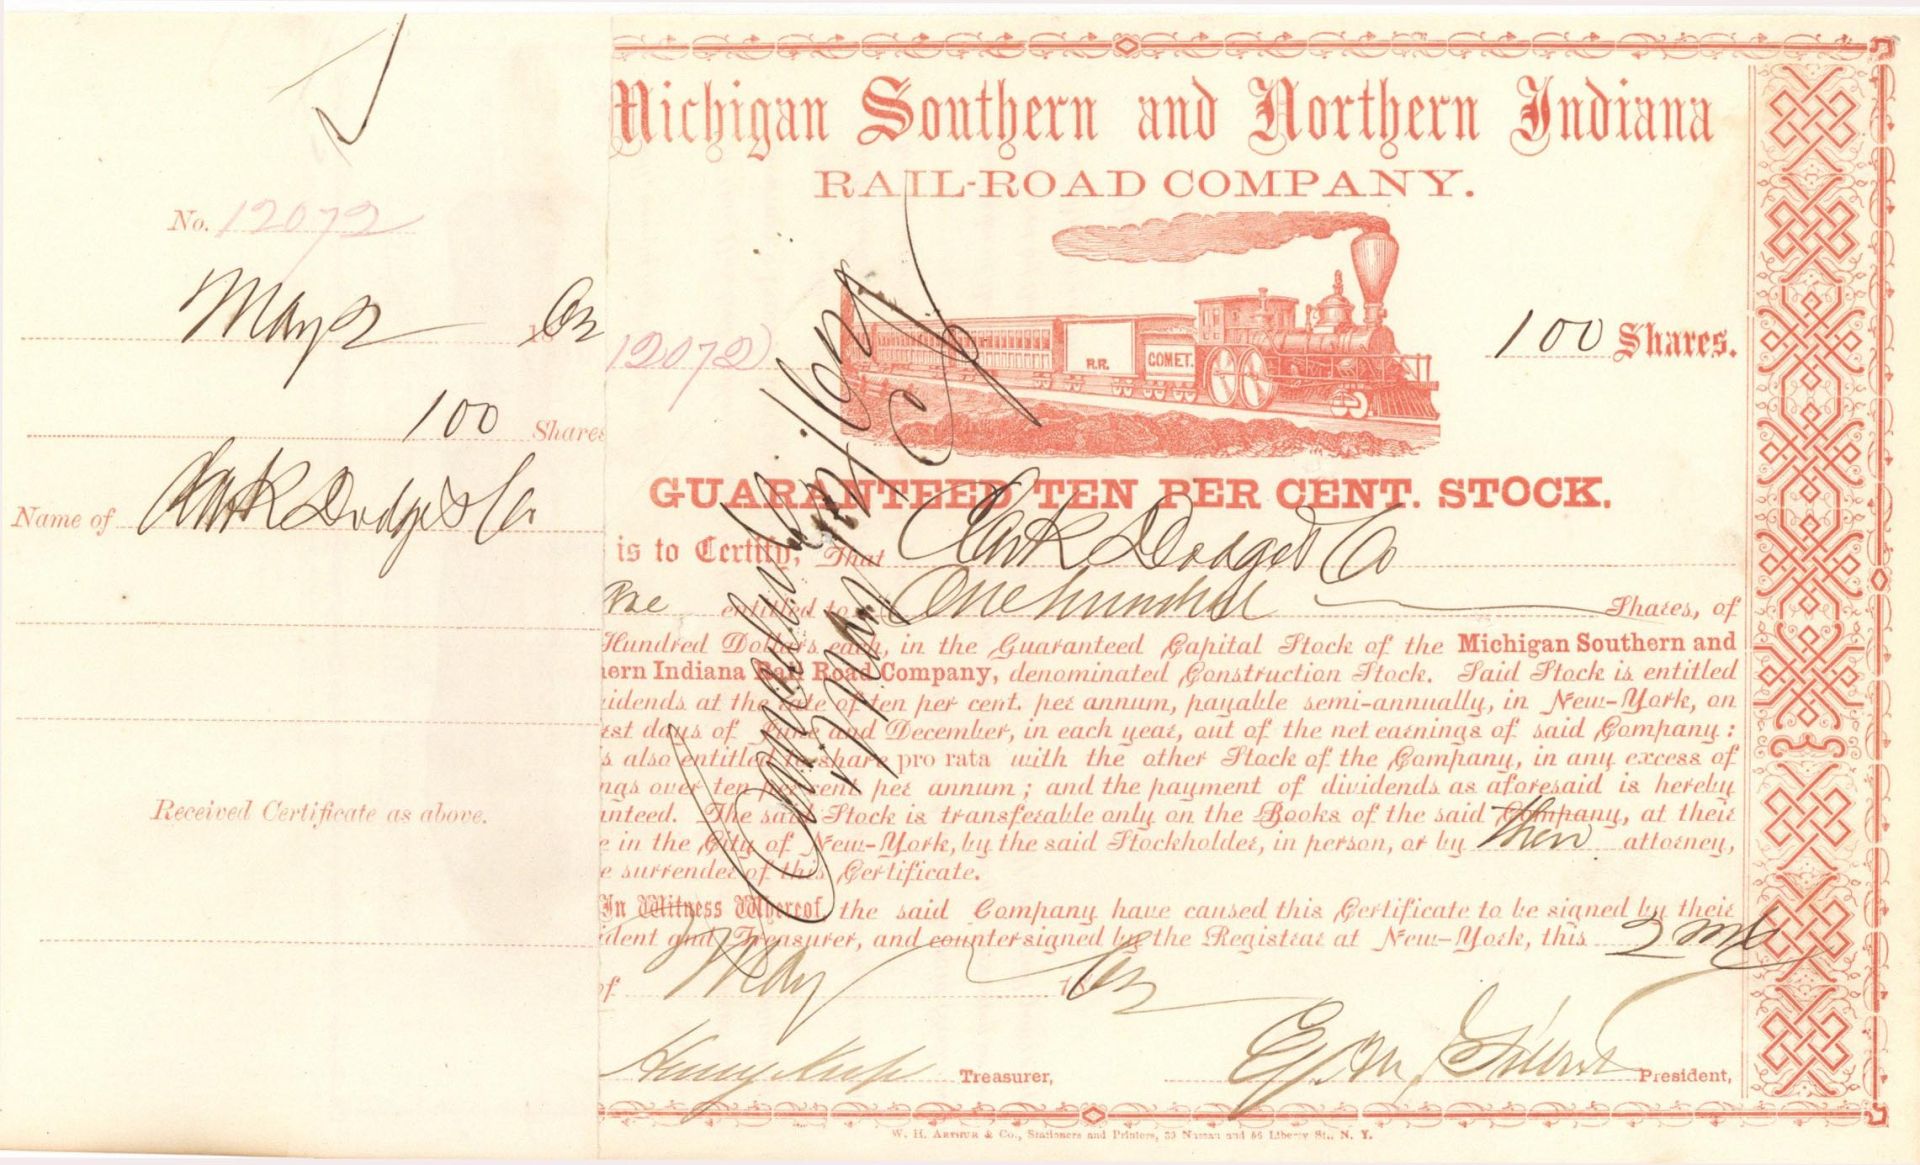 No. 12072
May 2 1 62
100 Shares
Name of Clark Dodge & Co
Received Certificate as above.
Michigan Southern and Northern Indiana
RAIL-ROAD COMPANY.
12072
R.R.
COMET.
100 Shares.
GUARANTEED TEN PER CENT. STOCK.
is to Certify, That Clark Dodge & Co
are entitled to One hundred Shares, of
Hundred Dollars each, in the Guaranteed Capital Stock of the Michigan Southern and
ern Indiana Rail Road Company, denominated Construction Stock. Said Stock is entitled
idends at the rate of ten per cent. per annum, payable semi-annually, in New-York, on
rst days of June and December, in each year, out of the net earnings of said Company:
s also entitled to share pro rata with the other Stock of the Company, in any excess of
ngs over ten per cent per annum; and the payment of dividends as aforesaid is hereby
anteed. The said Stock is transferable only on the Books of the said Company, at their
e in the City of New-York, by the said Stockholder, in person, or by their attorney,
e surrender of this Certificate.
In Witness Whereof, the said Company have caused this Certificate to be signed by their
ident and Treasurer, and countersigned by the Registrar at New-York, this 2nd
of May 62
Treasurer,
President,
W. H. ARTHUR & Co., Stationers and Printers, 39 Nassau and 56 Liberty St., N. Y.